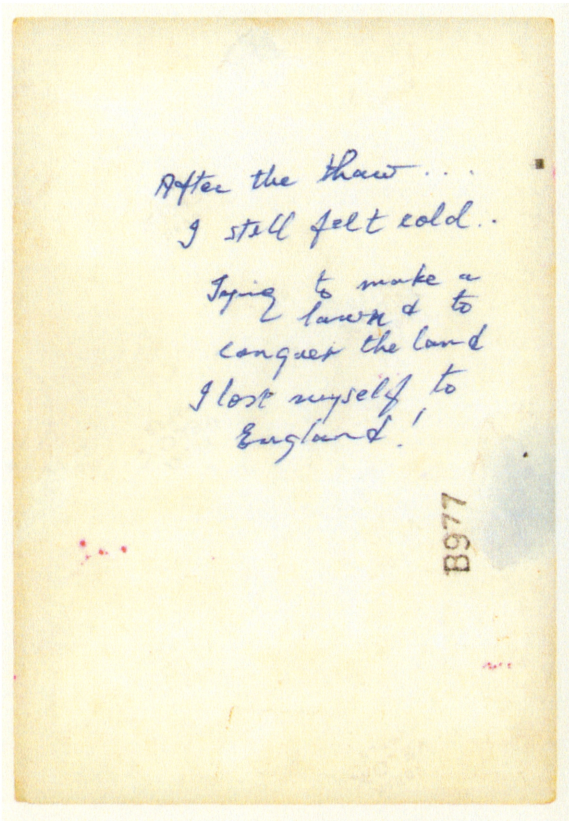 After the thaw....
I still felt cold..
Trying to make a
lawn & to
conquer the land
I lost myself to
England!
B977